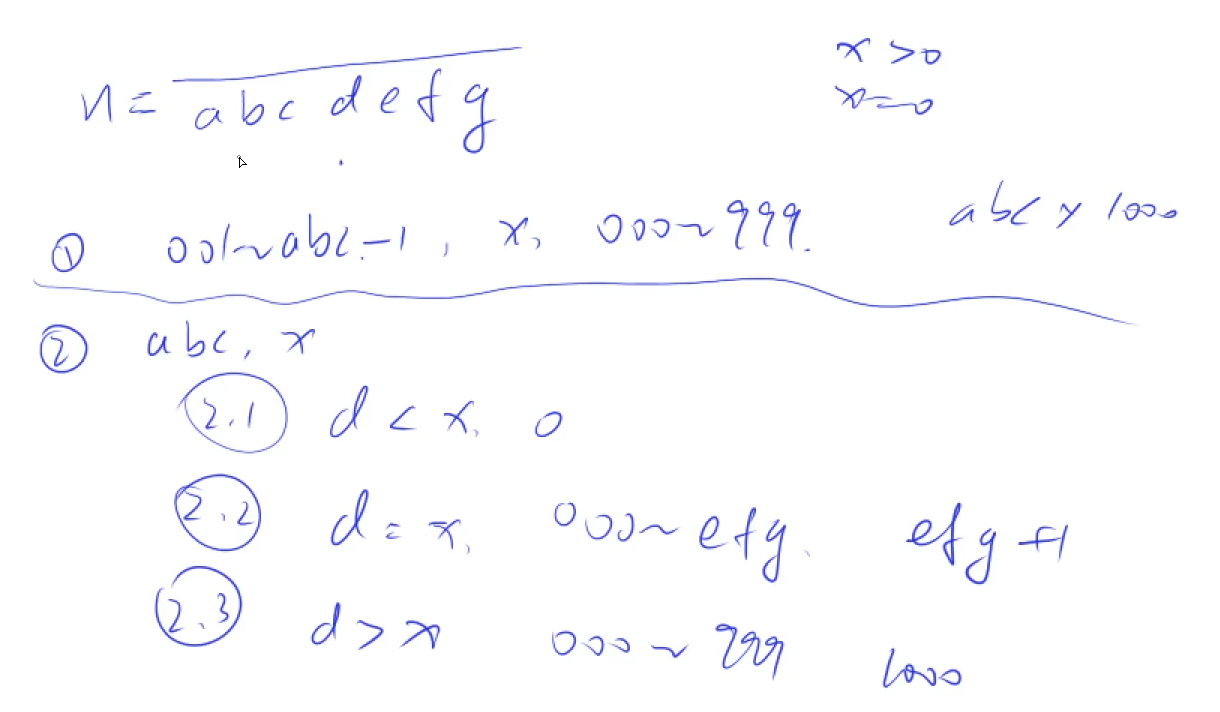 n = abcdefg
x > 0
x = 0
① 001~abc-1, x, 000~999. abc × 1000
② abc, x
2.1 d < x, 0
2.2 d = x, 000~efg. efg+1
2.3 d > x 000~999 1000